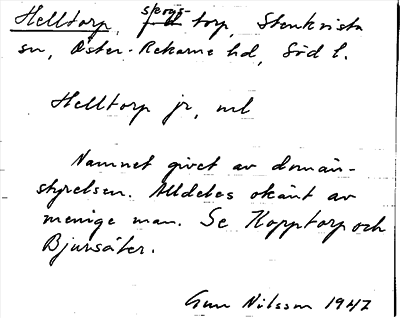 Helltorp, skogstorp, Stenkvista
sn, Öster-Rekarne hd, Söd l.
Helltorp jr, ml
Namnet givet av domän-
styrelsen. Alldeles okänt av
menige man. Se Kopptorp och
Bjursäter.
Gun Nilsson 1947